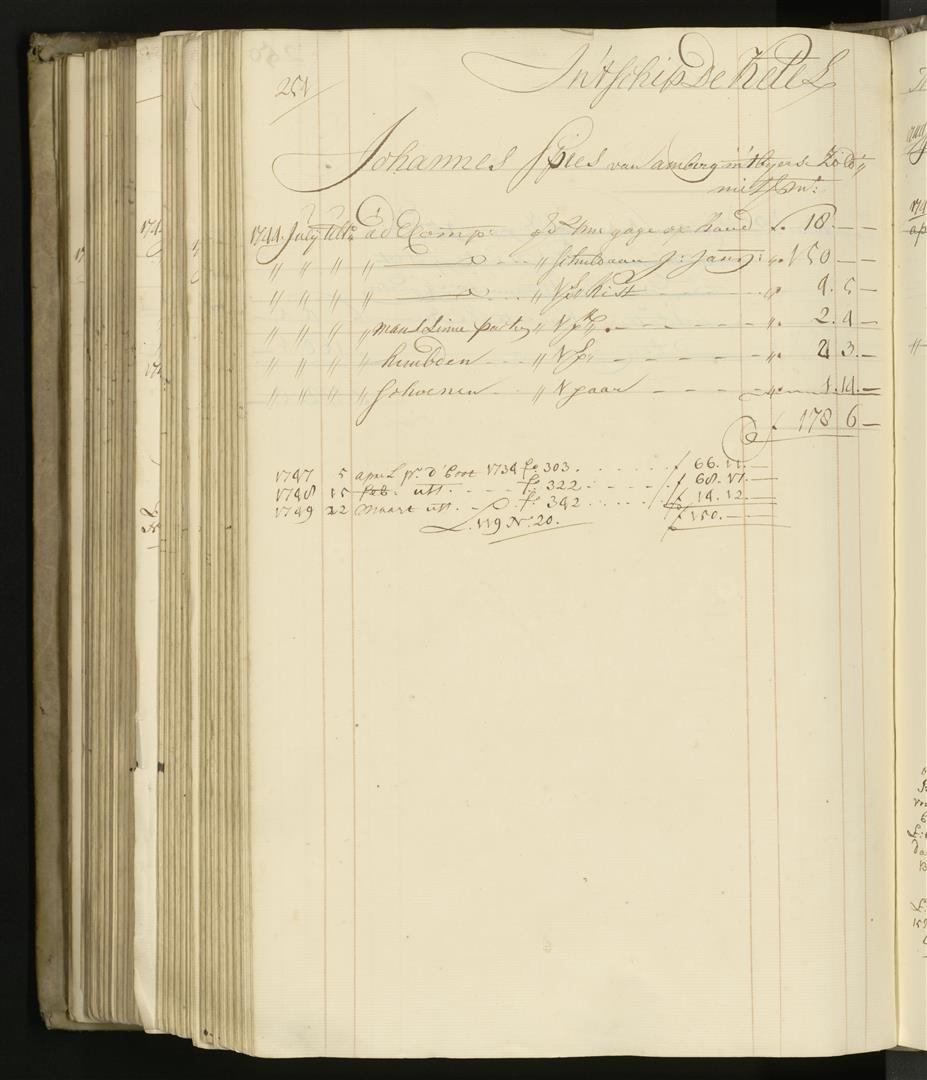 251
In't schip De Ketel
Johannes Spies van amberg in't Byerse Zold:,,
mits Mt:
1744. July Ulto: a'd Comp: 2 mn gage op hand f. 18. — —
,, ,, ,, ,, do ,, schuld aan J: Janz: ,, 150 — —
,, ,, ,, ,, do ,, 1 kist ,, 4. 5 —
,, ,, ,, ,, mans Linne ,, 1 ,, 2. 4 —
,, ,, ,, ,, hembden ,, 1 ,, 2 3. —
,, ,, ,, ,, Schoenen ,, 1 paar ,, 1. 14. —
f 178 6 —
1747 5 apr. L pr. d'boot 1734 fo. 303. f 66. 11. —
1748 15 feb. utt. fo. 322 f 68. 17. —
1749 22 Maart utt. fo. 342 f 14. 12. —
L. 119 No. 20. f 150. —